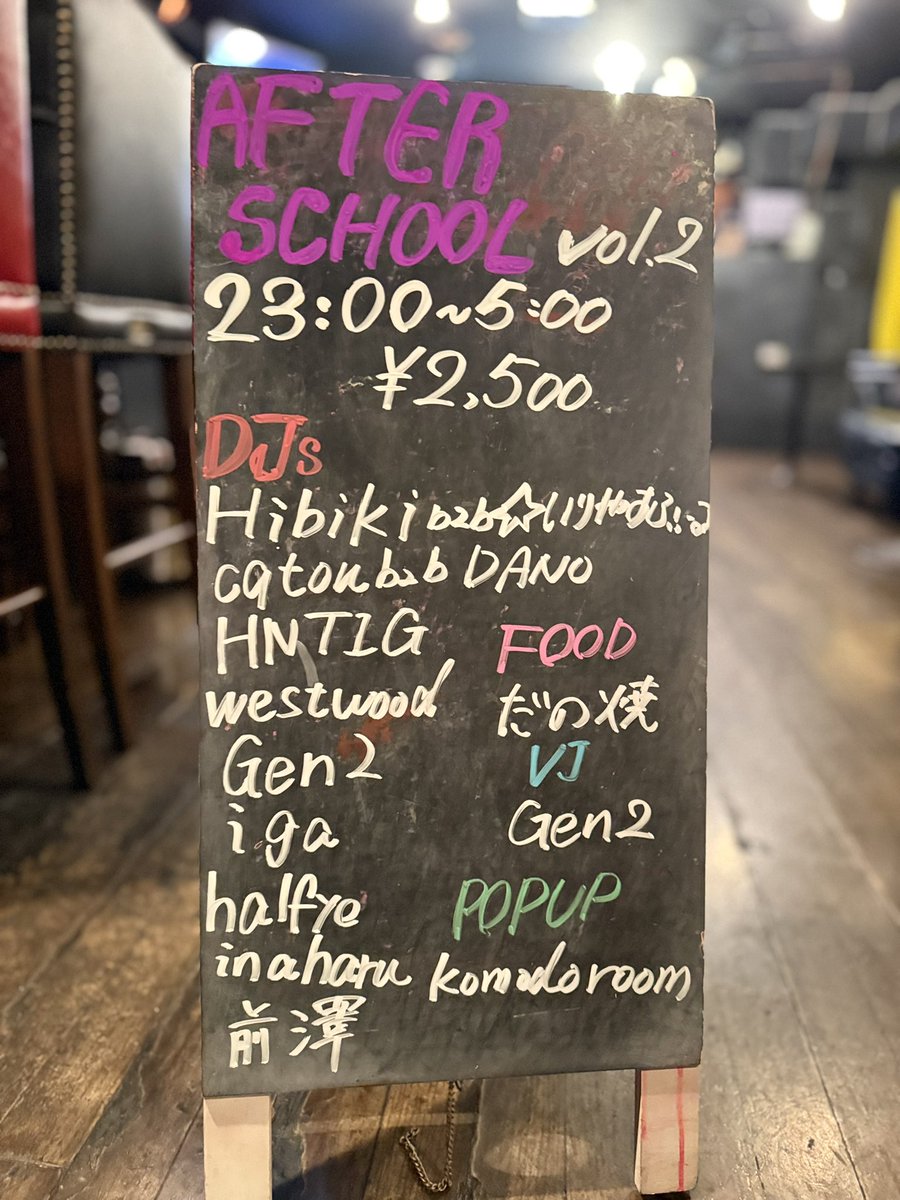 AFTER
SCHOOL vol.2
23:00~5:00
¥2,500
DJs
Hibiki b2b
catou b2b DANO
HNTIG
westwood
Gen2
iga
halfye
inaharu
前澤
FOOD
だの焼
VJ
Gen2
POPUP
komodo room